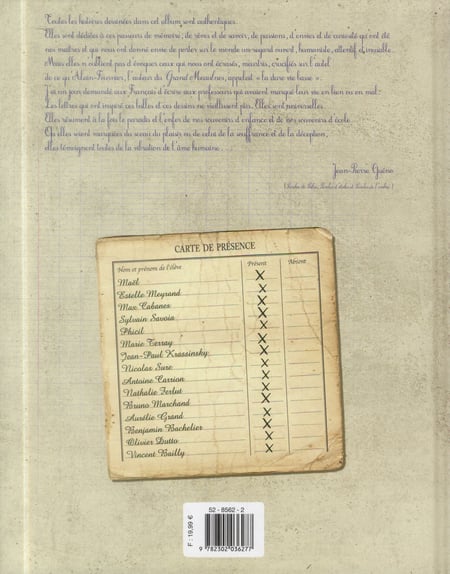 Toutes les histoires dessinées dans cet album sont authentiques.
Elles sont dédiées à ces passeurs de mémoire ; de rêves et de savoir, de passions, d'envies et de curiosité qu'ont été
nos maîtres et qui nous ont donné envie de porter sur le monde un regard ouvert, humaniste, attentif et
Mais elles n'oublient pas d'évoquer ceux qui nous ont écrasés, meurtris, crucifiés sur l'autel
de ce qu'Alain-Fournier, l'auteur du Grand Meaulnes, appelait « la dure vie basse ».
J'ai un jour demandé aux Français d'écrire aux professeurs qui avaient marqué leur vie en bien ou en mal :
Les lettres qui ont inspiré ces bulles et ces dessins ne vieillissent pas. Elles sont
Elles résument à la fois le paradis et l'enfer de nos souvenirs d'enfance et de nos souvenirs d'école...
Qu'elles soient marquées du sceau du plaisir ou de celui de la souffrance et de la déception,
elles témoignent toutes de la vibration de l'âme humaine...
Jean-Pierre Guéno
CARTE DE PRÉSENCE
Nom et prénom de l'élève Présent Absent
Maël X
Estelle Meyrand X
Max Cabanes X
Sylvain Savoia X
Phicil X
Marie Terray X
Jean-Paul Krassinsky X
Nicolas Sure X
Antoine Carrion X
Nathalie Ferlut X
Bruno Marchand X
Aurélie Grand X
Benjamin Bachelier X
Olivier Dutto X
Vincent Bailly X
52 - 8562 - 2
F : 19,99 €
9 782302 036277